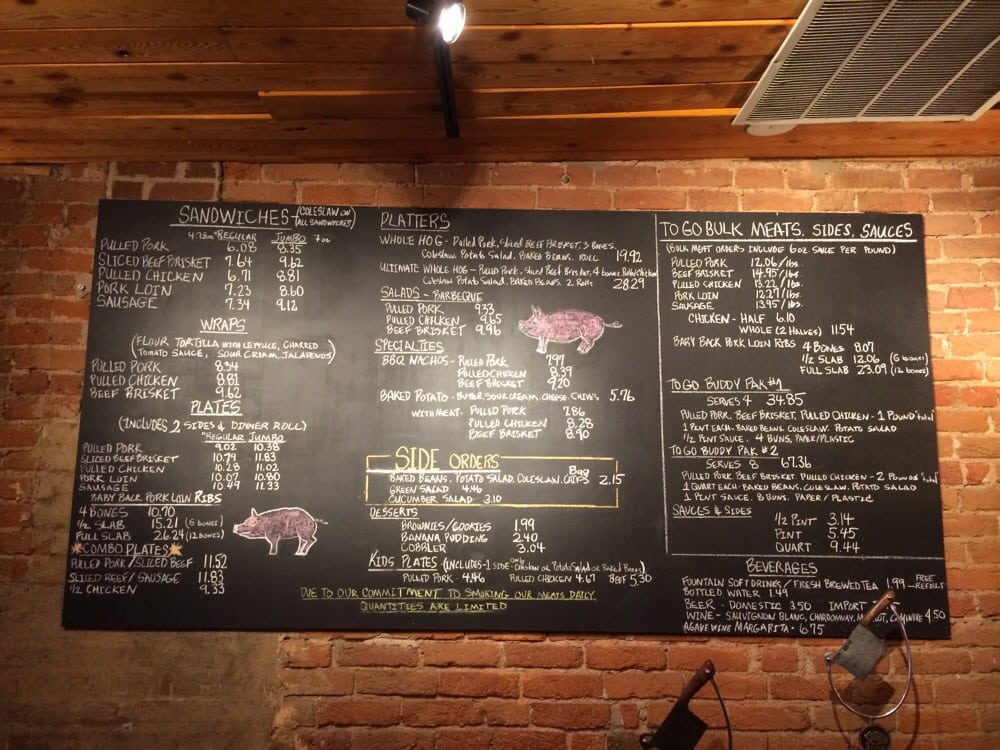 SANDWICHES - (COLESLAW ON ALL SANDWICHES)
4.75oz REGULAR JUMBO 7oz
PULLED PORK 6.08 8.35
SLICED BEEF BRISKET 7.64 9.62
PULLED CHICKEN 6.71 8.81
PORK LOIN 7.23 8.60
SAUSAGE 7.34 9.12
WRAPS
(FLOUR TORTILLA WITH LETTUCE, CHARRED
TOMATO SAUCE, SOUR CREAM, JALAPENOS)
PULLED PORK 8.34
PULLED CHICKEN 8.81
BEEF BRISKET 9.62
PLATES
(INCLUDES 2 SIDES & DINNER ROLL)
REGULAR JUMBO
PULLED PORK 9.02 10.38
SLICED BEEF BRISKET 10.79 11.83
PULLED CHICKEN 10.28 11.02
PORK LOIN 10.07 10.80
SAUSAGE 10.49 11.33
BABY BACK PORK LOIN RIBS
4 BONES 10.70
1/2 SLAB 15.21 (6 bones)
FULL SLAB 26.24 (12 bones)
COMBO PLATES
PULLED PORK/SLICED BEEF 11.52
SLICED BEEF/SAUSAGE 11.83
1/2 CHICKEN 9.33
PLATTERS
WHOLE HOG - Pulled Pork, Sliced BEEF BRISKET, 3 Bones,
Coleslaw, Potato Salad, BAKED BEANS, ROLL 19.92
ULTIMATE WHOLE HOG - PULLED PORK, Sliced Beef Brisket, 4 bones, Pulled Chicken
Coleslaw Potato Salad, BAKED BEANS, 2 Rolls 28.29
SALADS - BARBEQUE
PULLED PORK 9.33
PULLED CHICKEN 9.65
BEEF BRISKET 9.96
SPECIALTIES
BBQ NACHOS - PULLED PORK 7.97
PULLED CHICKEN 8.39
BEEF BRISKET 9.20
BAKED POTATO - BUTTER, SOUR CREAM, CHEESE, CHIVES 5.76
WITH MEAT - PULLED PORK 7.86
PULLED CHICKEN 8.28
BEEF BRISKET 8.90
SIDE ORDERS
BAKED BEANS, POTATO SALAD, COLESLAW, Bag CHIPS 2.15
GREEN SALAD 4.46
CUCUMBER SALAD 3.10
DESSERTS
BROWNIES/COOKIES 1.99
BANANA PUDDING 2.40
COBBLER 3.04
KIDS PLATES (INCLUDES-1 SIDE Coleslaw or Potato Salad or Baked Beans)
PULLED PORK - 4.46 PULLED CHICKEN 4.67 BEEF 5.30
DUE TO OUR COMMITMENT TO SMOKING OUR MEATS DAILY
QUANTITIES ARE LIMITED
TO GO BULK MEATS, SIDES, SAUCES
(BULK MEAT ORDERS INCLUDE 6oz SAUCE PER POUND)
PULLED PORK 12.06/lbs.
BEEF BRISKET 14.95/lbs.
PULLED CHICKEN 13.22/lbs.
PORK LOIN 12.27/lbs.
SAUSAGE 13.95/lbs.
CHICKEN - HALF 6.10
WHOLE (2 HALVES) 11.54
BABY BACK PORK LOIN RIBS 4 BONES 8.07
1/2 SLAB 12.06 (6 bones)
FULL SLAB 23.09 (12 bones)
TO GO BUDDY PAK #1
SERVES 4 34.85
PULLED PORK, BEEF BRISKET, PULLED CHICKEN - 1 POUND total
1 PINT EACH - BAKED BEANS, COLESLAW, POTATO SALAD
1/2 PINT SAUCE, 4 BUNS, PAPER/PLASTIC
TO GO BUDDY PAK #2
SERVES 8 67.36
PULLED PORK, BEEF BRISKET, PULLED CHICKEN - 2 POUNDS total
1 QUART EACH - BAKED BEANS, COLESLAW, POTATO SALAD
1 PINT SAUCE, 8 BUNS, PAPER/PLASTIC
SAUCES & SIDES
1/2 PINT 3.14
PINT 5.45
QUART 9.44
BEVERAGES
FOUNTAIN SOFT DRINKS/FRESH BREWED TEA 1.99 - FREE REFILLS
BOTTLED WATER 1.49
BEER - DOMESTIC 3.50 IMPORT
WINE - SAUVIGNON BLANC, CHARDONNAY, 4.50
AGAVE WINE MARGARITA - 6.75